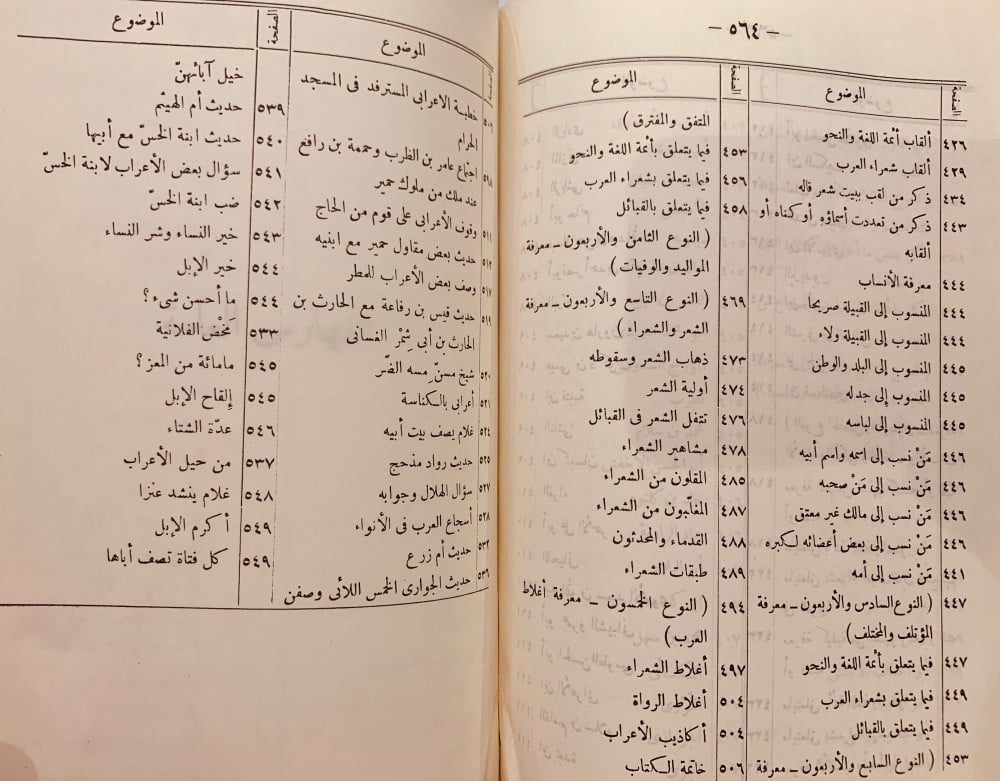 — ٥٦٤ —
الصفحة الموضوع
٤٢٦ ألقاب أئمة اللغة والنحو
٤٢٩ ألقاب شعراء العرب
٤٣٤ ذكر من لقب ببيت شعر قاله
٤٤٣ ذكر من تعددت أسماؤه أو كناه أو
ألقابه
٤٤٤ معرفة الأنساب
٤٤٤ المنسوب إلى القبيلة صريحا
٤٤٤ المنسوب إلى القبيلة ولاء
٤٤٥ المنسوب إلى البلد والوطن
٤٤٥ المنسوب إلى جدله
٤٤٥ المنسوب إلى لباسه
٤٤٦ مَنْ نسب إلى اسمه واسم أبيه
٤٤٦ مَنْ نسب إلى مَنْ صحبه
٤٤٦ مَنْ نسب إلى مالك غير معتق
٤٤٦ مَنْ نسب إلى بعض أعضائه لكبره
٤٤١ مَنْ نسب إلى أمه
٤٤٧ ( النوع السادس والأربعون ـ معرفة
المؤتلف والمختلف )
٤٤٧ فيما يتعلق بأئمة اللغة والنحو
٤٤٩ فيما يتعلق بشعراء العرب
٤٤٩ فيما يتعلق بالقبائل
٤٥٣ ( النوع السابع والأربعون ـ معرفة
الصفحة الموضوع
المتفق والمفترق )
٤٥٣ فيما يتعلق بأئمة اللغة والنحو
٤٥٦ فيما يتعلق بشعراء العرب
٤٥٨ فيما يتعلق بالقبائل
( النوع الثامن والأربعون ـ معرفة
المواليد والوفيات )
٤٦٩ ( النوع التاسع والأربعون ـ معرفة
الشعر والشعراء )
٤٧٣ ذهاب الشعر وسقوطه
٤٧٤ أولية الشعر
٤٧٦ تنقل الشعر فى القبائل
٤٧٨ مشاهير الشعراء
٤٨٥ المقلون من الشعراء
٤٨٧ المغلّبون من الشعراء
٤٨٨ القدماء والمحدثون
٤٨٩ طبقات الشعراء
٤٩٤ ( النوع الخمسون ـ معرفة أغلاط
العرب )
٤٩٧ أغلاط الشعراء
٥٠٤ أغلاط الرواة
٥٠٤ أكاذيب الأعراب
٥٠٦ خاتمة الكتاب
الصفحة الموضوع
خطبة الاعرابى المسترفد فى المسجد
الحرام
اجتماع عامر بن الظرب وحممة بن رافع
عند ملك من ملوك حمير
٥١١ وقوف الأعرابى على قوم من الحاج
٥١٢ حديث بعض مقاول حمير مع ابنيه
٥١٧ وصف بعض الأعراب للمطر
٥١٩ حديث قيس بن رفاعة مع الحارث بن
الحارث بن أبى شِمْر الغسانى
٥٢٠ شيخ مسنّ مسه الضّر
٥٢١ أعرابى بالكناسة
٥٢٤ غلام يصف بيت أبيه
٥٢٥ حديث رواد مذحج
٥٢٧ سؤال الهلال وجوابه
٥٢٨ أسجاع العرب فى الأنواء
٥٣٢ حديث أم زرع
٥٣٦ حديث الجوارى الخمس اللائى وصفن
الصفحة الموضوع
خيل آبائهنّ
٥٣٩ حديث أم الهيثم
٥٤٠ حديث ابنة الخسّ مع أبيها
٥٤١ سؤال بعض الأعراب لابنة الخسّ
٥٤٢ ضب ابنة الخسّ
٥٤٣ خير النساء وشر النساء
٥٤٤ خير الإبل
٥٤٤ ما أحسن شىء؟
٥٣٣ مَخْض الفلانية
٥٤٥ مامائة من المعز؟
٥٤٥ إلقاح الإبل
٥٤٦ عدّة الشتاء
٥٣٧ من حيل الأعراب
٥٤٨ غلام ينشد عنزا
٥٤٩ أكرم الإبل
٥٤٩ كل فتاة تصف أباها